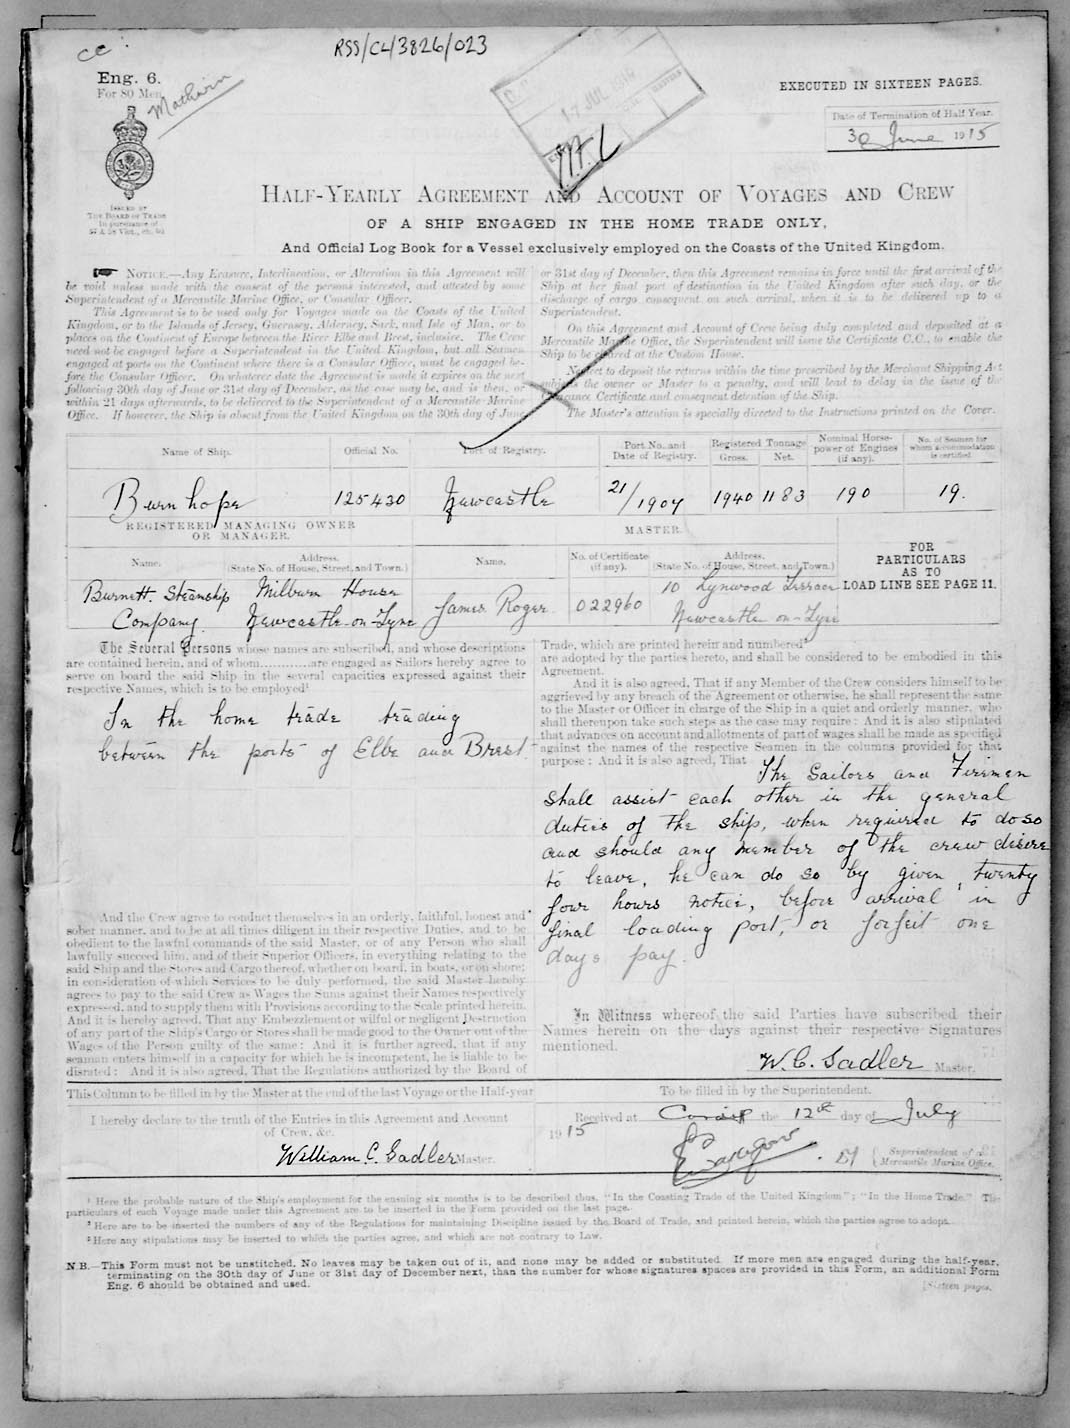 cc.
RSS/CL/3826/023
Eng. 6.
For 80 Men
17 JUL 1915
EXECUTED IN SIXTEEN PAGES.
Date of Termination of Half Year.
30 June 1915
ISSUED BY
THE BOARD OF TRADE
In pursuance of
57 & 58 Vict., ch. 60
HALF-YEARLY AGREEMENT AND ACCOUNT OF VOYAGES AND CREW
OF A SHIP ENGAGED IN THE HOME TRADE ONLY,
And Official Log Book for a Vessel exclusively employed on the Coasts of the United Kingdom.
NOTICE.—Any Erasure, Interlineation, or Alteration in this Agreement will
be void unless made with the consent of the persons interested, and attested by some
Superintendent of a Mercantile Marine Office, or Consular Officer.
This Agreement is to be used only for Voyages made on the Coasts of the United
Kingdom, or to the Islands of Jersey, Guernsey, Alderney, Sark, and Isle of Man, or to
places on the Continent of Europe between the River Elbe and Brest, inclusive. The Crew
need not be engaged before a Superintendent in the United Kingdom, but all Seamen
engaged at ports on the Continent where there is a Consular Officer, must be engaged be-
fore the Consular Officer. On whatever date the Agreement is made it expires on the next
following 30th day of June or 31st day of December, as the case may be, and is then, or
within 21 days afterwards, to be delivered to the Superintendent of a Mercantile Marine
Office. If however, the Ship is absent from the United Kingdom on the 30th day of June
or 31st day of December, then this Agreement remains in force until the first arrival of the
Ship at her final port of destination in the United Kingdom after such day, or the
discharge of cargo consequent on such arrival, when it is to be delivered up to a
Superintendent.
On this Agreement and Account of Crew being duly completed and deposited at a
Mercantile Marine Office, the Superintendent will issue the Certificate C.C., to enable the
Ship to be cleared at the Custom House.
Neglect to deposit the returns within the time prescribed by the Merchant Shipping Act
subjects the owner or Master to a penalty, and will lead to delay in the issue of the
Clearance Certificate and consequent detention of the Ship.
The Master's attention is specially directed to the Instructions printed on the Cover.
Name of Ship. Official No. Port of Registry. Port No. and Date of Registry. Registered Tonnage Gross. Net. Nominal Horse-power of Engines (if any). No. of Seamen for whom accommodation is certified.
Burnhope 125430 Newcastle 21/1907 1940 1183 190 19.
REGISTERED MANAGING OWNER
OR MANAGER.
MASTER.
Name. Address. (State No. of House, Street, and Town.) Name. No. of Certificate (if any). Address. (State No. of House, Street, and Town.)
FOR
PARTICULARS
AS TO
LOAD LINE SEE PAGE 11.
Burnett Steamship Milburn House James Roger 022960 10 Lynwood Terrace
Company. Newcastle-on-Tyne Newcastle on-Tyne
The Several Persons whose names are subscribed, and whose descriptions
are contained herein, and of whom............are engaged as Sailors hereby agree to
serve on board the said Ship in the several capacities expressed against their
respective Names, which is to be employed¹
In the home trade trading
between the ports of Elbe and Brest
And the Crew agree to conduct themselves in an orderly, faithful, honest and
sober manner, and to be at all times diligent in their respective Duties, and to be
obedient to the lawful commands of the said Master, or of any Person who shall
lawfully succeed him, and of their Superior Officers, in everything relating to the
said Ship and the Stores and Cargo thereof, whether on board, in boats, or on shore;
in consideration of which Services to be duly performed, the said Master hereby
agrees to pay to the said Crew as Wages the Sums against their Names respectively
expressed, and to supply them with Provisions according to the Scale printed herein.
And it is hereby agreed, That any Embezzlement or wilful or negligent Destruction
of any part of the Ship's Cargo or Stores shall be made good to the Owner out of the
Wages of the Person guilty of the same: And it is further agreed, that if any
seaman enters himself in a capacity for which he is incompetent, he is liable to be
disrated: And it is also agreed, That the Regulations authorized by the Board of
Trade, which are printed herein and numbered²
are adopted by the parties hereto, and shall be considered to be embodied in this
Agreement.
And it is also agreed, That if any Member of the Crew considers himself to be
aggrieved by any breach of the Agreement or otherwise, he shall represent the same
to the Master or Officer in charge of the Ship in a quiet and orderly manner, who
shall thereupon take such steps as the case may require: And it is also stipulated
that advances on account and allotments of part of wages shall be made as specified
against the names of the respective Seamen in the columns provided for that
purpose: And it is also agreed, That The Sailors and Firemen
shall assist each other in the general
duties of the ship, when required to do so
and should any member of the crew desire
to leave, he can do so by given, twenty
four hours notice, before arrival in
final loading port, or forfeit one
days pay.
In Witness whereof the said Parties have subscribed their
Names herein on the days against their respective Signatures
mentioned.
W. C. Sadler Master.
This Column to be filled in by the Master at the end of the last Voyage or the Half-year
I hereby declare to the truth of the Entries in this Agreement and Account
of Crew, &c.
William C. Sadler Master.
To be filled in by the Superintendent.
Received at Cardiff the 12th day of July
1915
Superintendent of a
Mercantile Marine Office.
¹ Here the probable nature of the Ship's employment for the ensuing six months is to be described thus, "In the Coasting Trade of the United Kingdom"; "In the Home Trade." The
particulars of each Voyage made under this Agreement are to be inserted in the Form provided on the last page.
² Here are to be inserted the numbers of any of the Regulations for maintaining Discipline issued by the Board of Trade, and printed herein, which the parties agree to adopt.
³ Here any stipulations may be inserted to which the parties agree, and which are not contrary to Law.
N.B.—This Form must not be unstitched. No leaves may be taken out of it, and none may be added or substituted. If more men are engaged during the half-year,
terminating on the 30th day of June or 31st day of December next, than the number for whose signatures spaces are provided in this Form, an additional Form
Eng. 6 should be obtained and used.
[Sixteen pages.